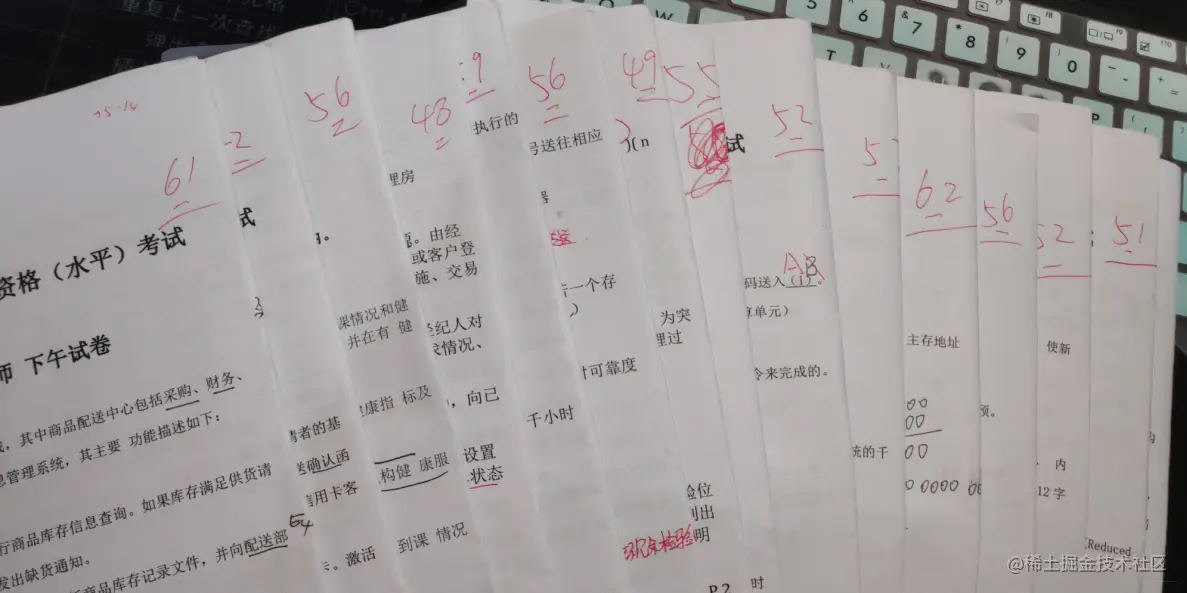 重复上一次查找
61
资格（水平）考试
师 下午试卷
，其中商品配送中心包括采购、财务、
息管理系统，其主要 功能描述如下：
行商品库存信息查询。如果库存满足供货请
发出缺货通知。
商品库存记录文件，并向配送部
E4
2
试
56
课情况和健
并在有 健
健康指 标及
请者的基
送确认函
信用卡客
。激活
48
理房
。由经
或客户登
施、交易
经纪人对
求情况、
构健 康服
到课 情况
9
执行的
，向己
设置
状态
56
号送往相应
器
若一个存
千小时
49
)(n
时可靠度
现余校验
55
为突
理过
验位
列出
明
P2 时
52
试
AB
码送入（1）。
算单元）
令来完成的。
5
统的千
62
主存地址
00
00
00
0 0000 00
56
预。
52
使新
内
12 字
51
Reduced
@稀土掘金技术社区
5
6
& 7
* 8
( 9
) 0
F7
F8
F9
F10